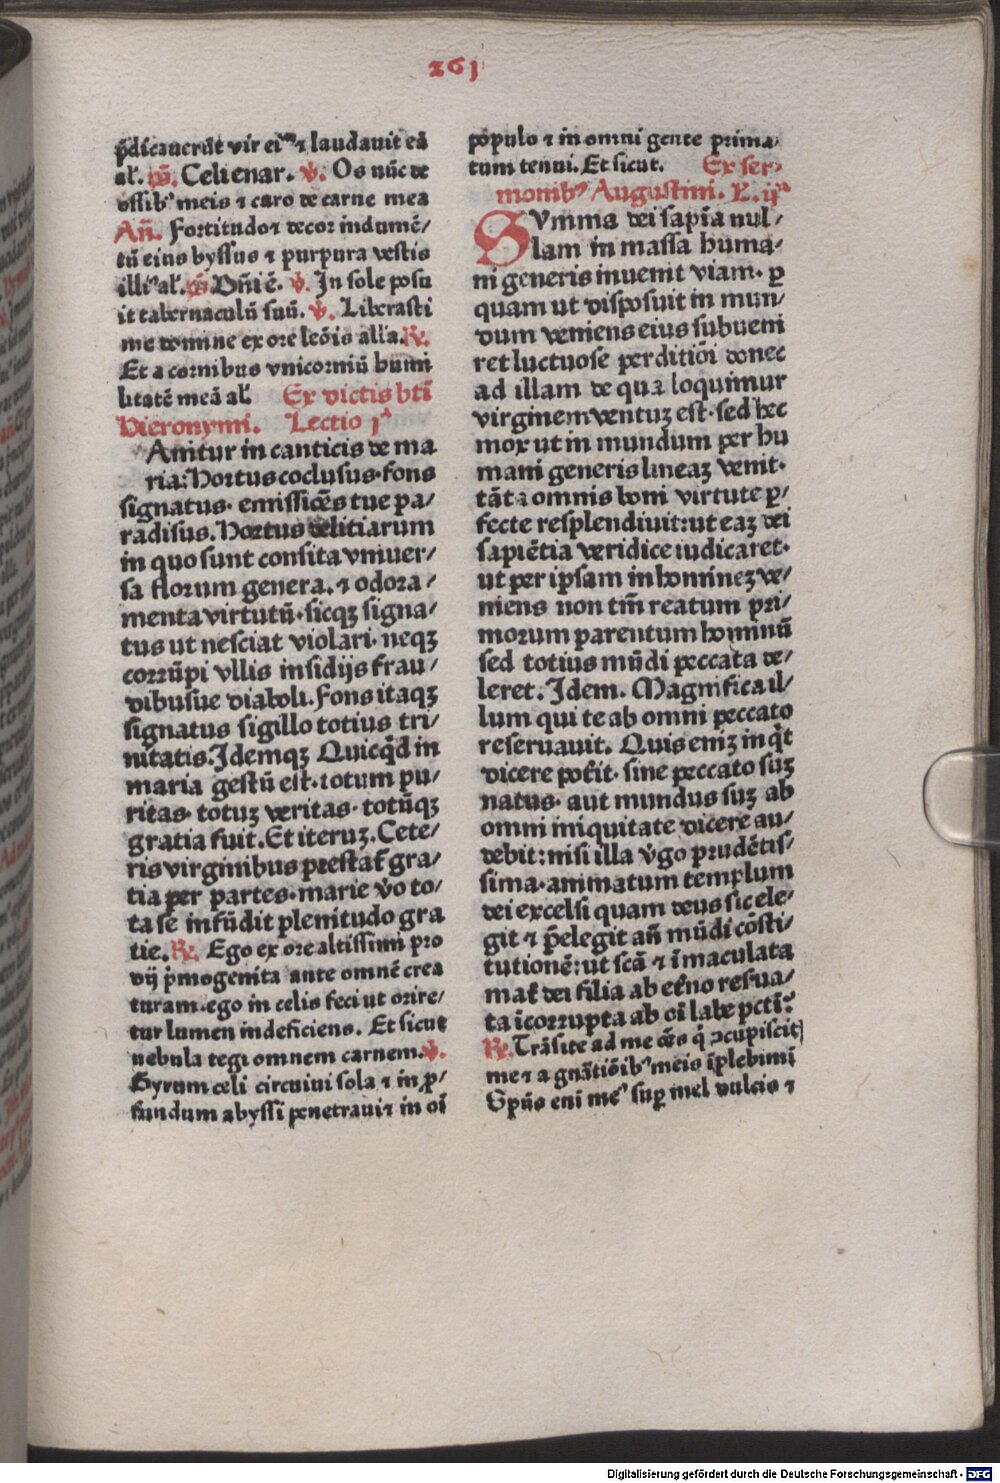 261
p̄dicauerūt vir ei⁹ ⁊ laudauit eā
al'. p̄s. Celi enar. ℣. Os nūc de
ossib⁹ meis ⁊ caro de carne mea
Añ. Fortitudo ⁊ decor indumē/
tū eius byssus ⁊ purpura vestis
illi⁹ al'. p̄s Dñi ē. ℣. In sole posu
it tabernaculū suū. ℣. Liberasti
me domine ex ore leōis alla. ℟.
Et a cornibus vnicorniū humi
litatē meā al' Ex dictis bti
Hieronymi. Lectio jᵃ
Anitur in canticis de ma
ria: Hortus cōclusus. fons
signatus. emissiōes tue pa/
radisus. Hortus delitiarum
in quo sunt consita vniuer/
sa florum genera. ⁊ odora/
menta virtutū. sicqꝫ signa/
tus ut nesciat violari. neqꝫ
corrūpi vllis insidijs frau/
dibusue diaboli. Fons itaqꝫ
signatus sigillo totius tri/
nitatis. Idemqꝫ Quicq̄d in
maria gestū est. totum pu/
ritas. totuꝫ veritas. totūqꝫ
gratia fuit. Et iteruꝫ. Cete/
ris virginibus prestat̄ gra/
tia per partes. marie v̓o to/
ta se infūdit plenitudo gra
tie. ℟. Ego ex ore altissimi pro
dij p̓mogenita ante omnē crea
turam. ego in celis feci ut orire/
tur lumen indeficiens. Et sicut
nebula tegi omnem carnem. ℣.
Gyrum celi circuiui sola ⁊ in p̄/
fundum abyssi penetraui ⁊ in oī
populo ⁊ in omni gente prima/
tum tenui. Et sicut. Ex ser/
monib⁹ Augustini. L. ijᵃ
SVmma dei sapīa nul/
lam in massa huma/
ni generis inuenit viam. ꝑ
quam ut disposuit in mun/
dum veniens eius subueni
ret luctuose perditiōi donec
ad illam de qua loquimur
virginem ventuꝫ est. sed hec
mox ut in mundum per hu
mani generis lineaꝫ venit.
tāta omnis boni virtute ꝑ/
fecte resplendiuit: ut eaꝫ dei
sapiētia veridice iudicaret.
ut per ipsam in homineꝫ ve/
niens non tm̄ reatum pri/
morum parentum hominū
sed totius mūdi peccata de/
leret. Idem. Magnifica il/
lum qui te ab omni peccato
reseruauit. Quis eniꝫ inq̓t
dicere pot̄it. sine peccato suꝫ
natus. aut mundus suꝫ ab
omni iniquitate dicere au/
debit: nisi illa v̓go prudētis/
sima. animatum templum
dei excelsi quam deus sic ele/
git ⁊ p̄elegit añ mūdi cōsti/
tutionē: ut scā ⁊ īmaculata
mat̄ dei filia ab et̓no resua/
ta īcorrupta ab oī labe pcti?
℟. Trāsite ad me oēs q̓ ↄcupiscit̓
me ⁊ a gnātiōib⁹ meis īplebimī
Spūs eni me⁹ sup̱ mel dulcis ⁊
Digitalisierung gefördert durch die Deutsche Forschungsgemeinschaft - DFG